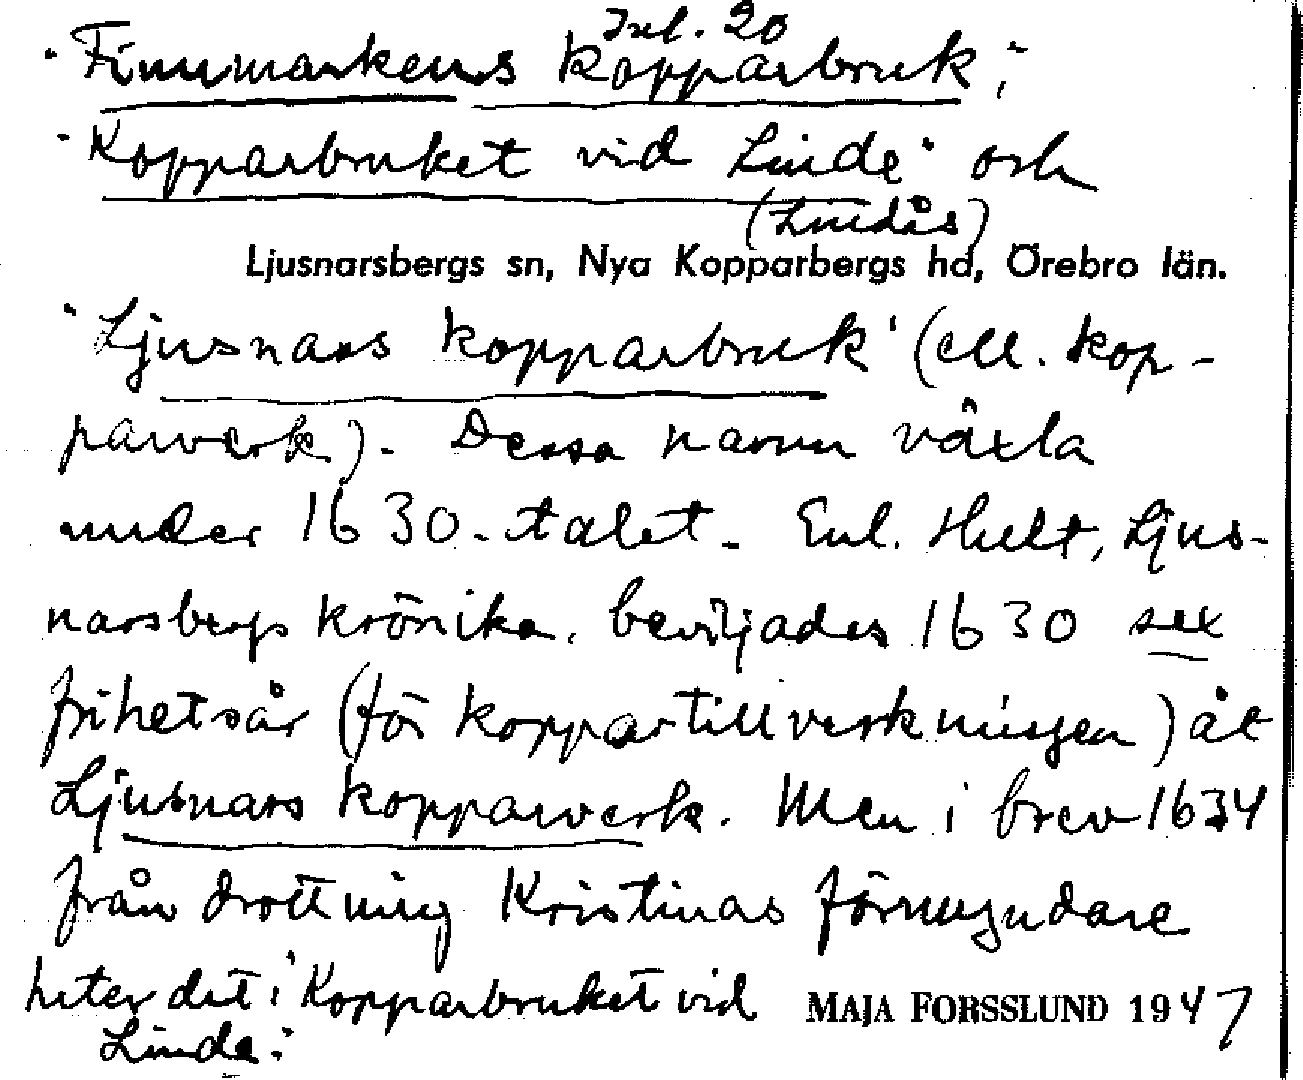 Inl. 20
"Finnmarkens kopparbruk",
"Kopparbruket vid Linde" och
(Lindås)
Ljusnarsbergs sn, Nya Kopparbergs hd, Örebro län.
"Ljusnars kopparbruk" (ell. kop-
parverk). Dessa namn växla
under 1630-talet. Enl. Hult, Ljus-
narsbergs krönika, beviljades 1630 sex
frihetsår (för koppartillverkningen) åt
Ljusnars kopparverk. Men i brev 1634
från drottning Kristinas förmyndare
heter det: "Kopparbruket vid
Linde."
MAJA FORSSLUND 1947